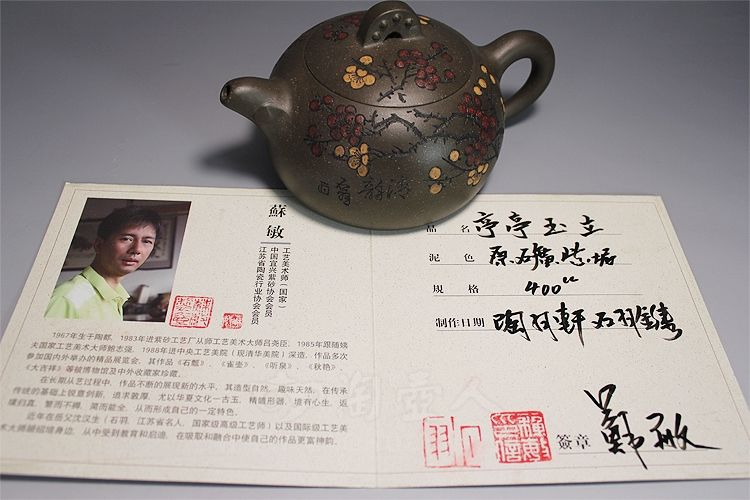 蘇敏
工艺美术师（国家）
中国宜兴紫砂协会会员
江苏省陶瓷行业协会会员
1967年生于陶都，1983年进紫砂工艺厂从师工艺美术大师吕尧臣，1985年跟随姨
夫国家工艺美术大师鲍志强，1988年进中央工艺美院（现清华美院）深造，作品多次
参加国内外举办的精品展览会，其作品《石瓢》、《雀壶》、《听泉》、《秋艳》
《大吉祥》等被博物馆及中外收藏家珍藏。
在长期从艺过程中，作品不断的展现新的水平，其造型自然，趣味天然，在传承
传统的基础上锐意创新，追求敦厚，尤以华夏文化一古玉，精镶形器，境有心生，返
璞归真，繁而不褥，简而能全，从而形成自己的一定特色。
近年在岳父沈汉生（石羽，江苏省名人，国家级高级工艺师）以及国际级工艺美
术大师鲍姐培身边，从中受到教育和启迪，在吸取和融合中使自己的作品更富神韵。
品名 亭亭玉立
泥色 原矿
规格 400cc
制作日期 陶 轩 石羽
签章 苏敏